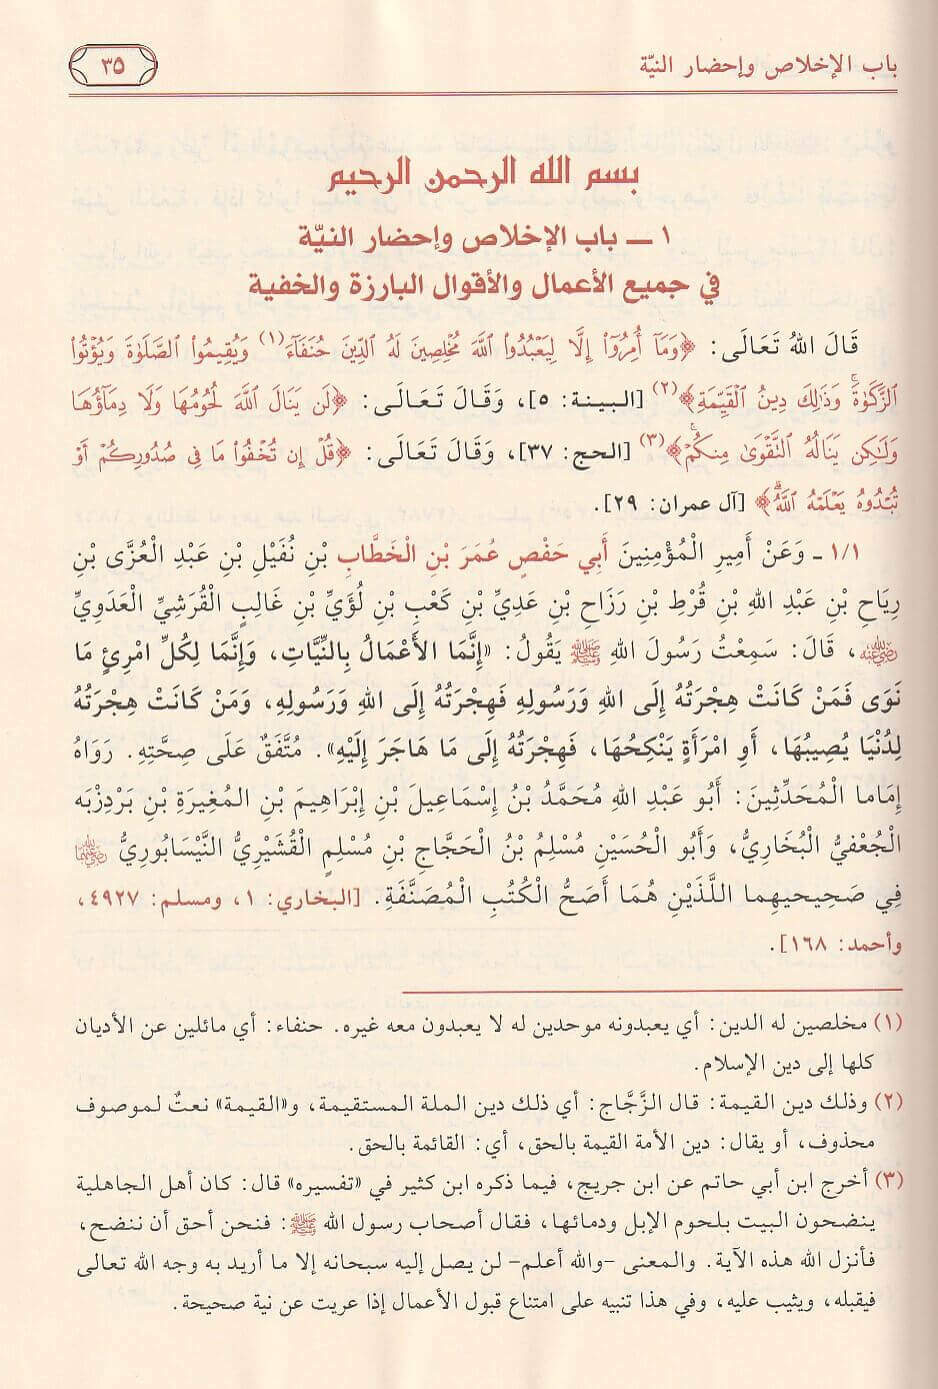 باب الإخلاص وإحضار النيّة
٣٥
بسم الله الرحمن الرحيم
١ ـ باب الإخلاص وإحضار النيّة
في جميع الأعمال والأقوال البارزة والخفية
قَالَ اللهُ تَعَالَى: ﴿وَمَآ أُمِرُوٓاْ إِلَّا لِيَعۡبُدُواْ ٱللَّهَ مُخۡلِصِينَ لَهُ ٱلدِّينَ حُنَفَآءَ(١) وَيُقِيمُواْ ٱلصَّلَوٰةَ وَيُؤۡتُواْ
ٱلزَّكَوٰةَۚ وَذَٰلِكَ دِينُ ٱلۡقَيِّمَةِ﴾(٢) [البينة: ٥]، وَقَالَ تَعَالَى: ﴿لَن يَنَالَ ٱللَّهَ لُحُومُهَا وَلَا دِمَآؤُهَا
وَلَٰكِن يَنَالُهُ ٱلتَّقۡوَىٰ مِنكُمۡۚ﴾(٣) [الحج: ٣٧]، وَقَالَ تَعَالَى: ﴿قُلۡ إِن تُخۡفُواْ مَا فِي صُدُورِكُمۡ أَوۡ
تُبۡدُوهُ يَعۡلَمۡهُ ٱللَّهُۗ﴾ [آل عمران: ٢٩].
١/١ ـ وَعَنْ أَمِيرِ الْمُؤْمِنِينَ أَبِي حَفْصٍ عُمَرَ بْنِ الْخَطَّابِ بْنِ نُفَيْلِ بْنِ عَبْدِ الْعُزَّى بْنِ
رِيَاحِ بْنِ عَبْدِ اللهِ بْنِ قُرْطِ بْنِ رَزَاحِ بْنِ عَدِيِّ بْنِ كَعْبِ بْنِ لُؤَيِّ بْنِ غَالِبٍ الْقُرَشِيِّ الْعَدَوِيِّ
رضي الله عنه، قَالَ: سَمِعْتُ رَسُولَ اللهِ ﷺ يَقُولُ: «إِنَّمَا الأَعْمَالُ بِالنِّيَّاتِ، وَإِنَّمَا لِكُلِّ امْرِئٍ مَا
نَوَى فَمَنْ كَانَتْ هِجْرَتُهُ إِلَى اللهِ وَرَسُولِهِ فَهِجْرَتُهُ إِلَى اللهِ وَرَسُولِهِ، وَمَنْ كَانَتْ هِجْرَتُهُ
لِدُنْيَا يُصِيبُهَا، أَوِ امْرَأَةٍ يَنْكِحُهَا، فَهِجْرَتُهُ إِلَى مَا هَاجَرَ إِلَيْهِ». مُتَّفَقٌ عَلَى صِحَّتِهِ. رَوَاهُ
إِمَاما الْمُحَدِّثِينَ: أَبُو عَبْدِ اللهِ مُحَمَّدُ بْنُ إِسْمَاعِيلَ بْنِ إِبْرَاهِيمَ بْنِ المُغِيرَةِ بْنِ بَرْدِزْبَه
الْجُعْفِيُّ الْبُخَارِيُّ، وَأَبُو الْحُسَيْنِ مُسْلِمُ بْنُ الْحَجَّاجِ بْنِ مُسْلِمٍ الْقُشَيْرِيُّ النَّيْسَابُورِيُّ رضي الله عنهما
فِي صَحِيحيهِما اللَّذَيْنِ هُمَا أَصَحُّ الْكُتُبِ الْمُصَنَّفَةِ. [البخاري: ١، ومسلم: ٤٩٢٧،
وأحمد: ١٦٨].
(١) مخلصين له الدين: أي يعبدونه موحدين له لا يعبدون معه غيره. حنفاء: أي مائلين عن الأديان
كلها إلى دين الإسلام.
(٢) وذلك دين القيمة: قال الزَّجَّاج: أي ذلك دين الملة المستقيمة، و«القيمة» نعتٌ لموصوف
محذوف، أو يقال: دين الأمة القيمة بالحق، أي: القائمة بالحق.
(٣) أخرج ابن أبي حاتم عن ابن جريج، فيما ذكره ابن كثير في «تفسيره» قال: كان أهل الجاهلية
ينضحون البيت بلحوم الإبل ودمائها، فقال أصحاب رسول الله ﷺ: فنحن أحق أن ننضح،
فأنزل الله هذه الآية. والمعنى -والله أعلم- لن يصل إليه سبحانه إلا ما أريد به وجه الله تعالى
فيقبله، ويثيب عليه، وفي هذا تنبيه على امتناع قبول الأعمال إذا عريت عن نية صحيحة.